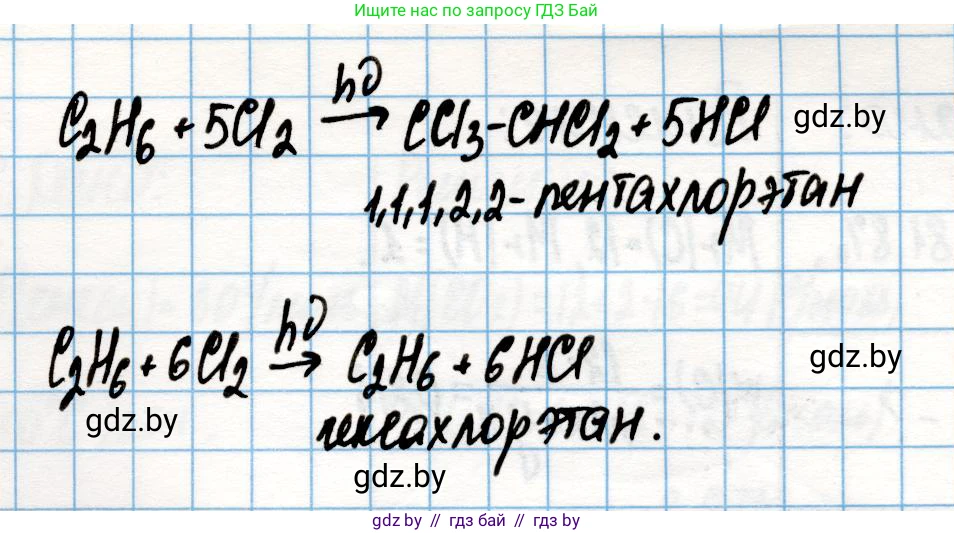 Ищите нас по запросу ГДЗ Бай
C₂H₆ + 5Cl₂ hν→ CCl₃-CHCl₂ + 5HCl gdz.by
1,1,1,2,2-пентахлорэтан
C₂H₆ + 6Cl₂ hν→ C₂H₆ + 6HCl gdz.by
gdz.by
гексахлорэтан.
gdz.by
gdz.by // гдз бай // гдз by